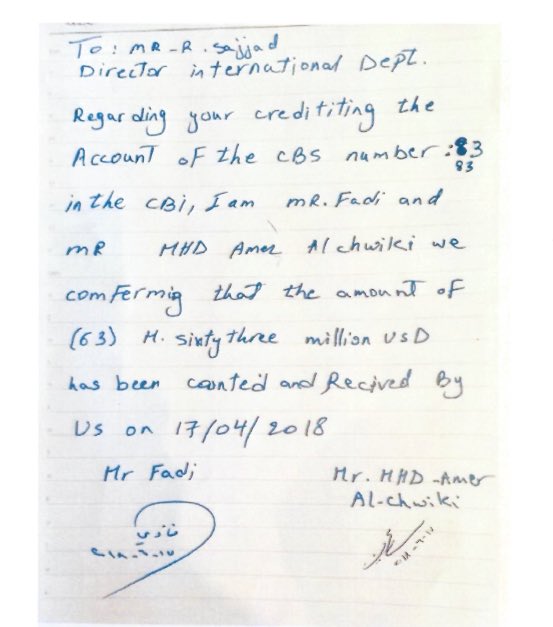 To: MR-R. Sajjad
Director international Dept.
Regarding your credititing the
Account of the CBS number: 83
83
in the CBi, I am mR. Fadi and
mR MHD Amer Al chwiki we
comfermig that the amount of
(63) M. sixty three million USD
has been counted and Recived By
Us on 17/04/2018
Mr Fadi
Mr. MHD-Amer
Al-chwiki
فادي